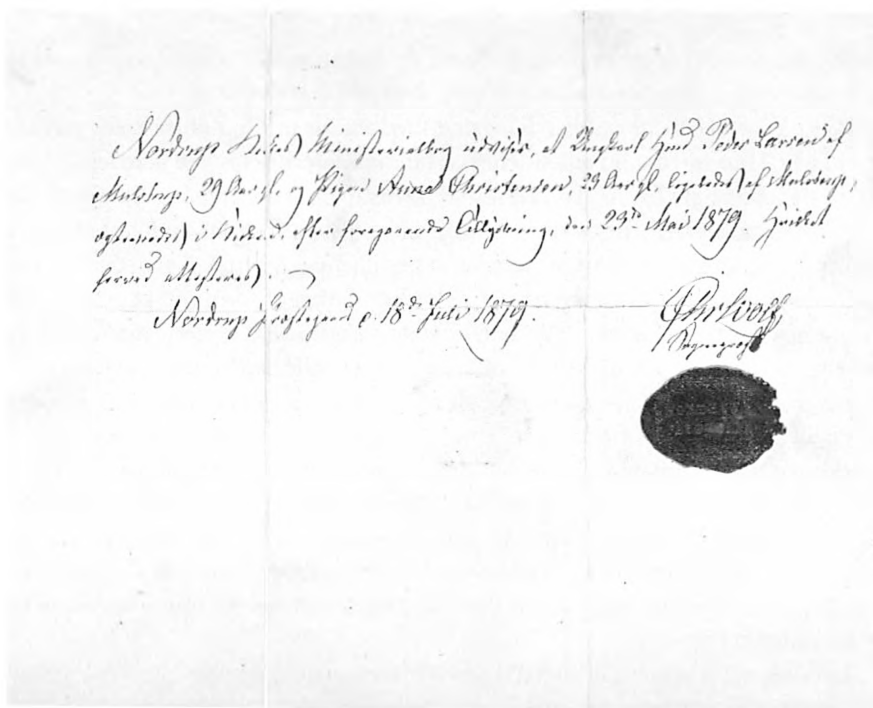 Nordrup Kirkes Ministerialbog udviser, at Ungkarl Hans Peder Larsen af
Mulstrup, 29 Aar gl. og Pigen Anne Christensen, 23 Aar gl. ligeledes af Mulstrup,
ægteviedes i Kirken, efter foregaaende Tillysning, den 23de Mai 1879. Hvilket
herved attesteres.
Nordrup Præstegaard d. 18de Juli 1879.
Sognepræst